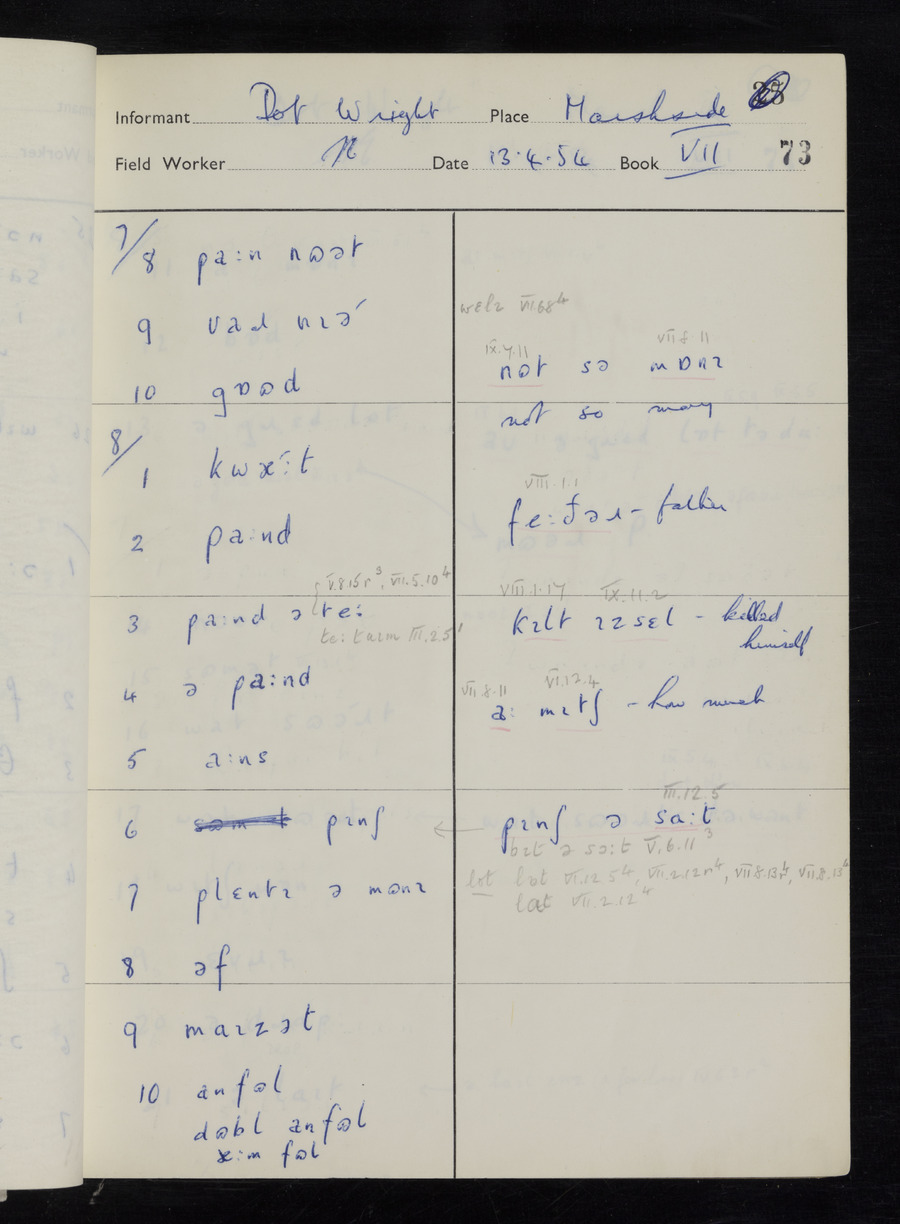 Informant Dot Wright Place Marshside
Field Worker Date 13.4.54 Book VII 73
7/8 pa:n nɷət
9
10 gɷɷd
welɪ VII.6.8⁴
IX.7.11 VII.8.11
nɒt sə mɒnɪ
not so many
8/1 kwɑ:t
2 pa:nd
VIII.1.1
fe:ðəɹ - father
V.8.15r³, VII.5.10⁴
3 pa:nd ə te:
te: taɪm III.2.5
VIII.1.17 IX.11.2
kɪlt ɪzsɛl - killed
himself
4 ə pa:nd
VII.8.11 VI.12.4
a: mɪtʃ - how much
5 a:ns
III.12.5
6 pɪnʃ pɪnʃ ə sa:t
bɪt ə sɔ:t V.6.11³
lɒt VI.12.5⁴, VII.2.12r⁴, VII.8.13r⁴, VII.8.13⁴
lat VII.2.12⁴
7 plɛntɪ ə mɷnɪ
8 əf
9 maɪzət
10 anfəl
dɷbl anfɷl
fɷl